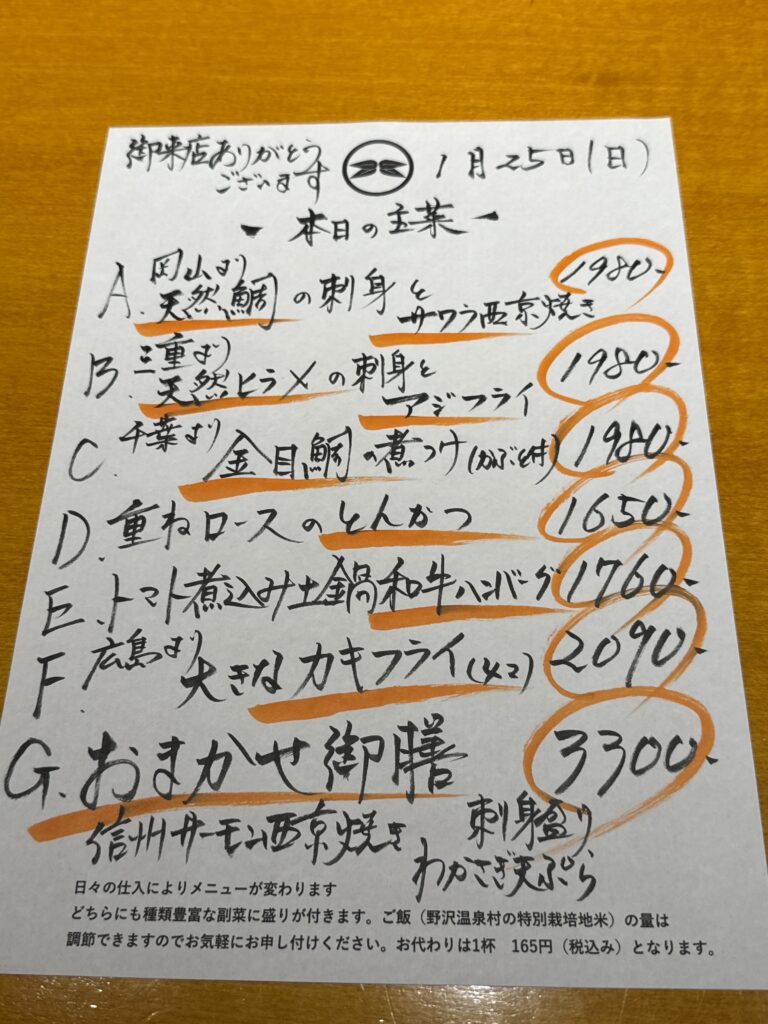 御来店ありがとう
ございます
1月25日(日)
本日の主菜
A. 岡山より
天然鯛の刺身と
サワラ西京焼き
1980-
B. 三重より
天然ヒラメの刺身と
アジフライ
1980-
C. 千葉より
金目鯛の煮つけ(かぶと付)
1980-
D. 重ねロースのとんかつ
1650-
E. トマト煮込み土鍋和牛ハンバーグ
1760-
F. 広島より
大きなカキフライ(4コ)
2090-
G. おまかせ御膳
3300-
信州サーモン西京焼き
刺身盛り
わかさぎ天ぷら
日々の仕入によりメニューが変わります
どちらにも種類豊富な副菜に盛りが付きます。ご飯（野沢温泉村の特別栽培地米）の量は
調節できますのでお気軽にお申し付けください。お代わりは1杯　165円（税込み）となります。